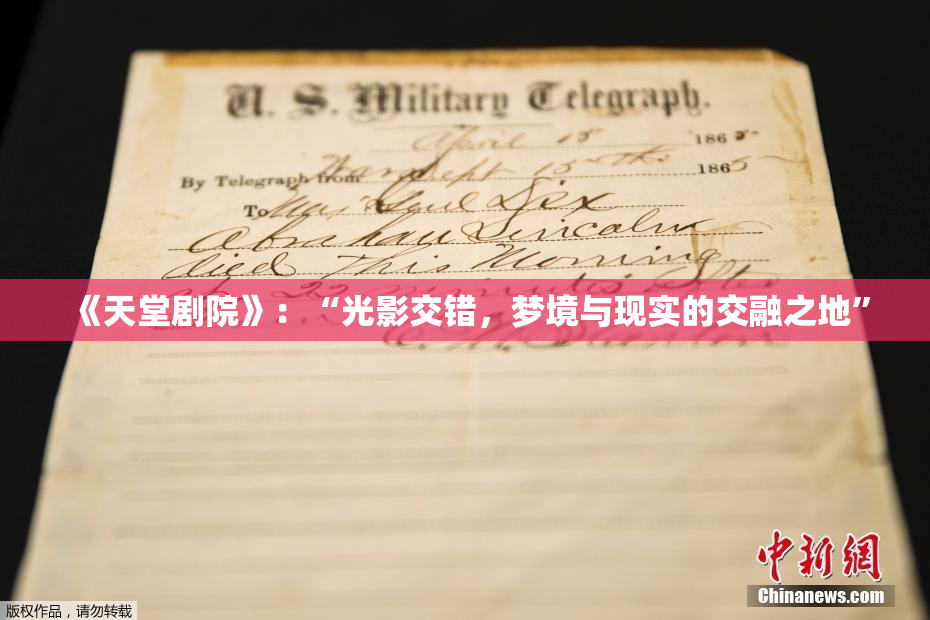 U. S. Military Telegraph.
April 15 1865
By Telegraph from War Dept 15th 1865
To Maj Genl Dix
Abraham Lincoln
died This Morning
at 22 minutes after
《天堂剧院》：“光影交错，梦境与现实的交融之地”
E. M. Stanton
中新网
Chinanews.com
版权作品，请勿转载